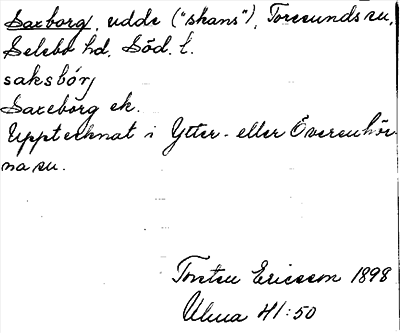 Saxborg, udde ("skans"), Toresunds sn,
Selebo hd, Söd. l.
saksbórj
Saxeborg ek.
Upptecknat i Ytter- eller Överenhör-
na sn.
Torsten Ericsson 1898
Ulma 41:50